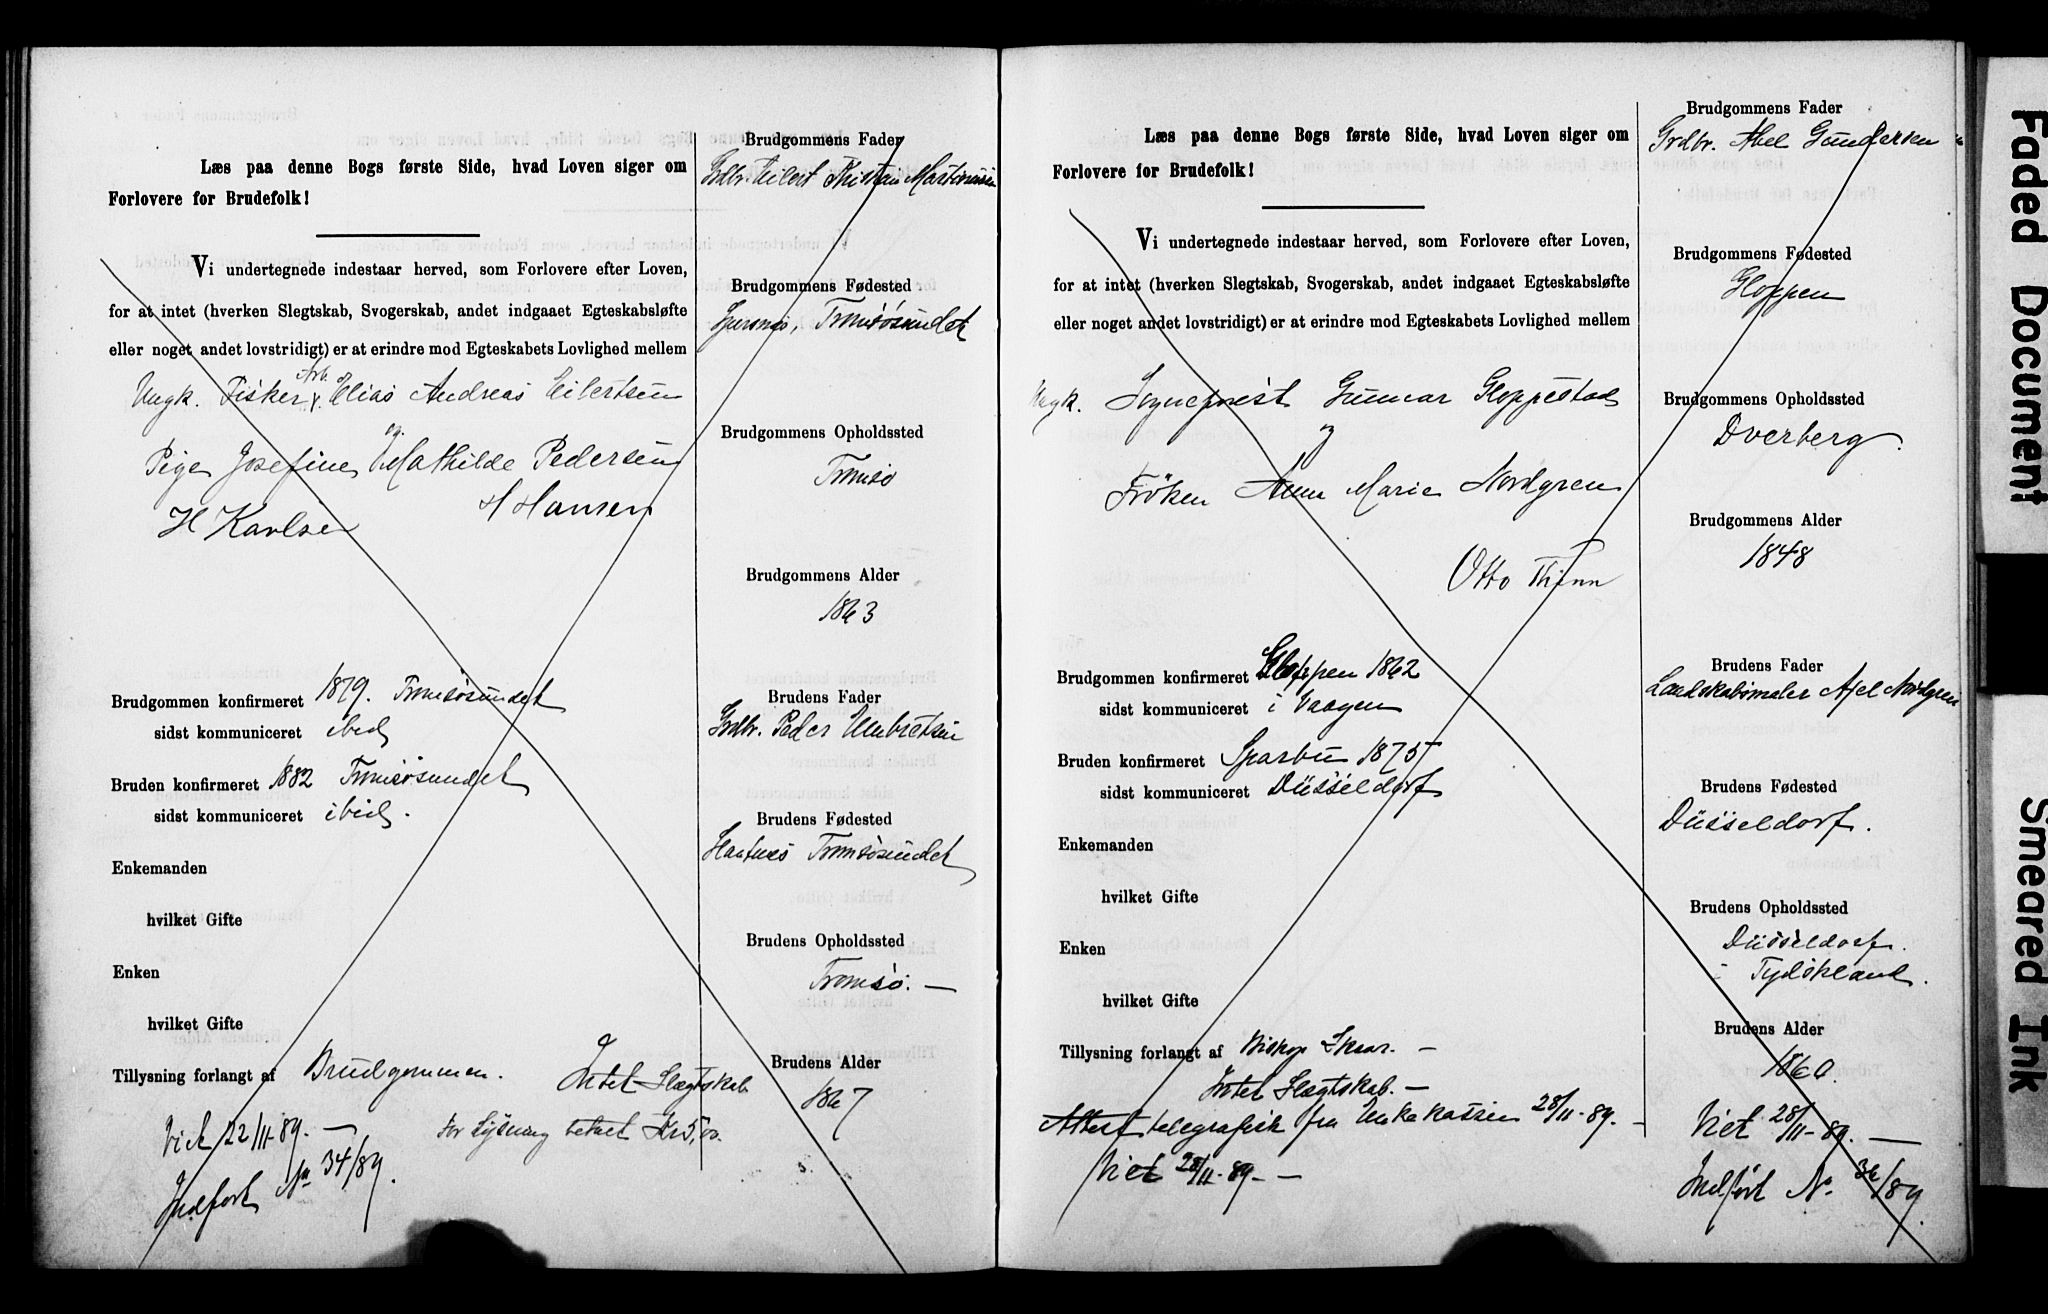 Læs paa denne Bogs første Side, hvad Loven siger om
Forlovere for Brudefolk!
Vi undertegnede indestaar herved, som Forlovere efter Loven,
for at intet (hverken Slegtskab, Svogerskab, andet indgaaet Egteskabsløfte
eller noget andet lovstridigt) er at erindre mod Egteskabets Lovlighed mellem
Arb.
Ungk. Fisker Elias Andreas Eilertsen
og
Pige Josefine Mathilde Pedersen
H Hansen
H Karlsen
Brudgommen konfirmeret 1879. Tromsøsundet
sidst kommuniceret ibid
Bruden konfirmeret 1882 Tromsøsundet
sidst kommuniceret ibid.
Enkemanden
hvilket Gifte
Enken
hvilket Gifte
Tillysning forlangt af Brudgommen. Intet Slægtskab
Viet 22/11-89. — For Lysning betalt Kr 5,00.
Indført No 34/89.
Brudgommens Fader
Grdbr. Eilert Martinussen
Brudgommens Fødested
Tromsøsundet
Brudgommens Opholdssted
Tromsø
Brudgommens Alder
1863
Brudens Fader
Grdbr. Peder Enbretsen
Brudens Fødested
Tromsøsundet
Brudens Opholdssted
Tromsø. —
Brudens Alder
1867
Læs paa denne Bogs første Side, hvad Loven siger om
Forlovere for Brudefolk!
Vi undertegnede indestaar herved, som Forlovere efter Loven,
for at intet (hverken Slegtskab, Svogerskab, andet indgaaet Egteskabsløfte
eller noget andet lovstridigt) er at erindre mod Egteskabets Lovlighed mellem
Ungk. Sogneprest Gunnar Gloppestad
og
Frøken Anna Marie Nordgren
Otto Thinn
Brudgommen konfirmeret Gloppen 1862
sidst kommuniceret i Vaagen
Bruden konfirmeret Sparbu 1875
sidst kommuniceret Düsseldorf
Enkemanden
hvilket Gifte
Enken
hvilket Gifte
Tillysning forlangt af Biskop Skaar. —
Intet Slægtskab. —
Attest telegrafisk fra Enkekassen 28/11-89. —
Viet 28/11-89. —
Brudgommens Fader
Grdbr. Abel Gundersen
Brudgommens Fødested
Gloppen
Brudgommens Opholdssted
Dverberg.
Brudgommens Alder
1848
Brudens Fader
Landskabsmaler Axel Nordgren
Brudens Fødested
Düsseldorf.
Brudens Opholdssted
Düsseldorf.
i Tydskland.
Brudens Alder
1860.
Viet 28/11-89. —
Indført No. 36/89.
Faded Document
Smeared Ink